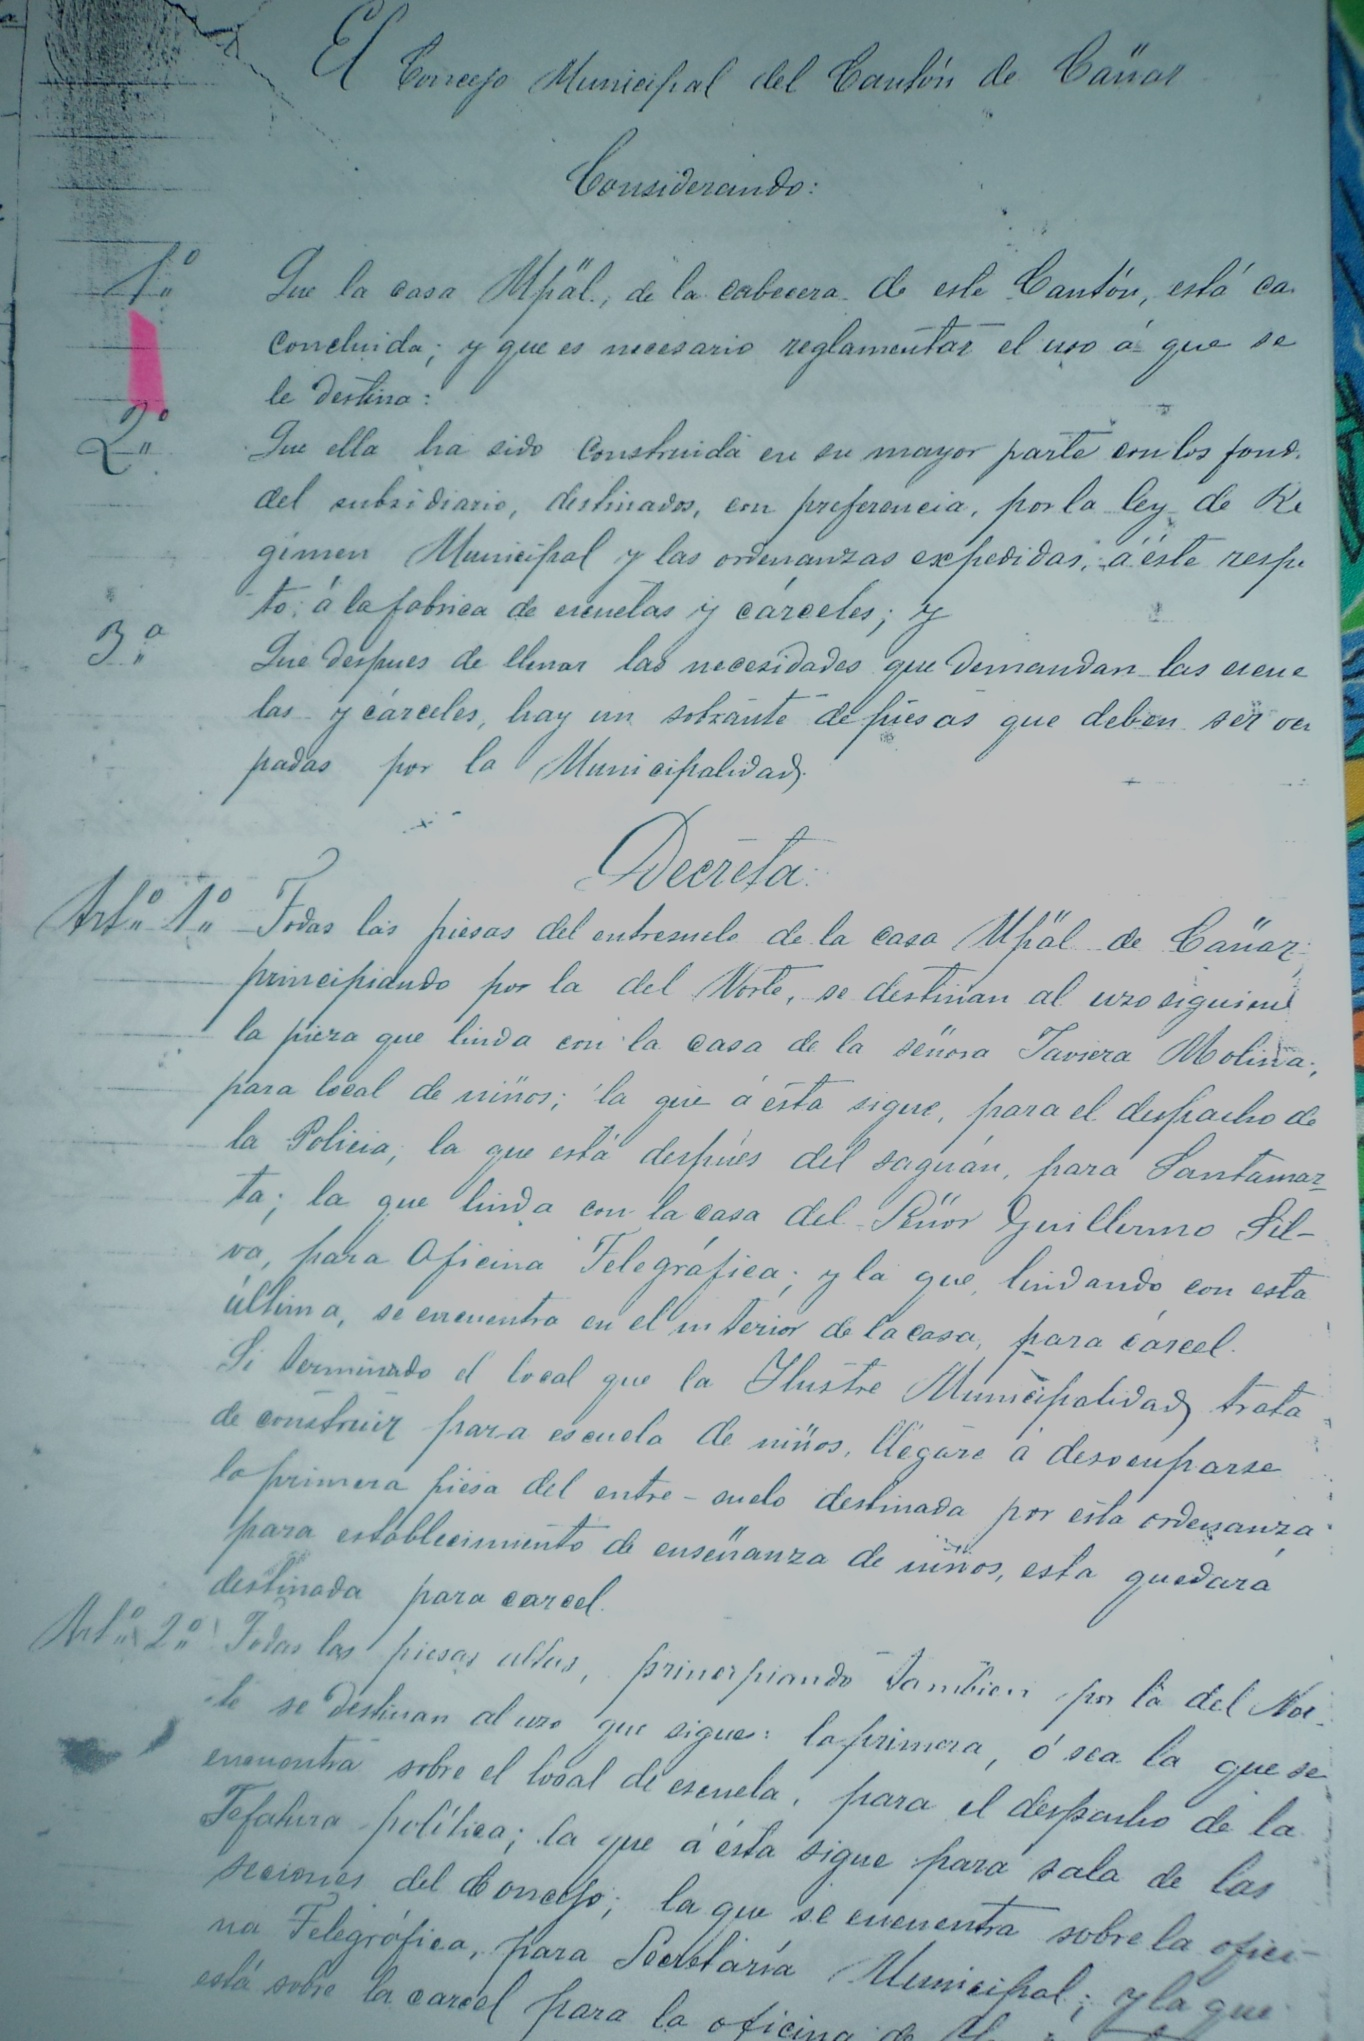 El Concejo Municipal del Cantón de Cañar
Considerando:
1º Que la casa Mpäl., de la cabecera de este Cantón, está ca
concluida; y que es necesario reglamentar el uso á que se
le destina:
2º Que ella ha sido construida en su mayor parte con los fond.
del subsidiario, destinados, con preferencia, por la ley de Ré
gimen Municipal y las ordenanzas expedidas, á éste respe
to, á la fabrica de escuelas y cárceles; y
3º Que despues de llenar las necesidades que demandan las escue
las y cárceles, hay un sobrante de piesas que deben ser ocu
padas por la Municipalidad.
Decreta:
Artº 1º Todas las piesas del entresuelo de la casa Mpäl de Cañar,
principiando por la del Norte, se destinan al uzo siguien
la pieza que linda con la casa de la señora Javiera Molina,
para local de niños; la que á ésta sigue, para el despacho de
la Policia; la que está después del saguán, para Santamar-
ta; la que linda con la casa del Señor Guillermo Sil-
va, para Oficina Telegráfica; y la que, lindando con esta
última, se encuentra en el interior de la casa, para cárcel.
Si terminado el local que la Ilustre Municipalidad trata
de construir para escuela de niños, llegare á desocuparse
la primera piesa del entre-suelo destinada por esta ordenanza
para establecimiento de enseñanza de niños, esta quedará
destinada para carcel.
Artº 2º Todas las piesas altas, principiando tambien por la del Nor-
te se destinan al uzo que sigue: la primera, ó sea la que se
encuentra sobre el local de escuela, para el despacho de la
Jefatura política; la que á ésta sigue para sala de las
seciones del Concejo; la que se encuentra sobre la ofici-
na Telegráfica, para Secretaría Municipal; y la que
está sobre la carcel para la oficina de